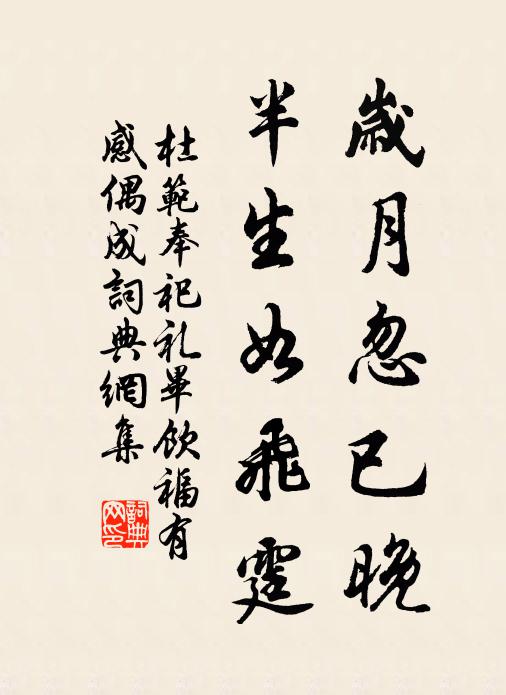 歲月忽已晚
半生如飛霆
杜範奉祀礼畢飲福有
感偶成詞典網集
詞典
网印